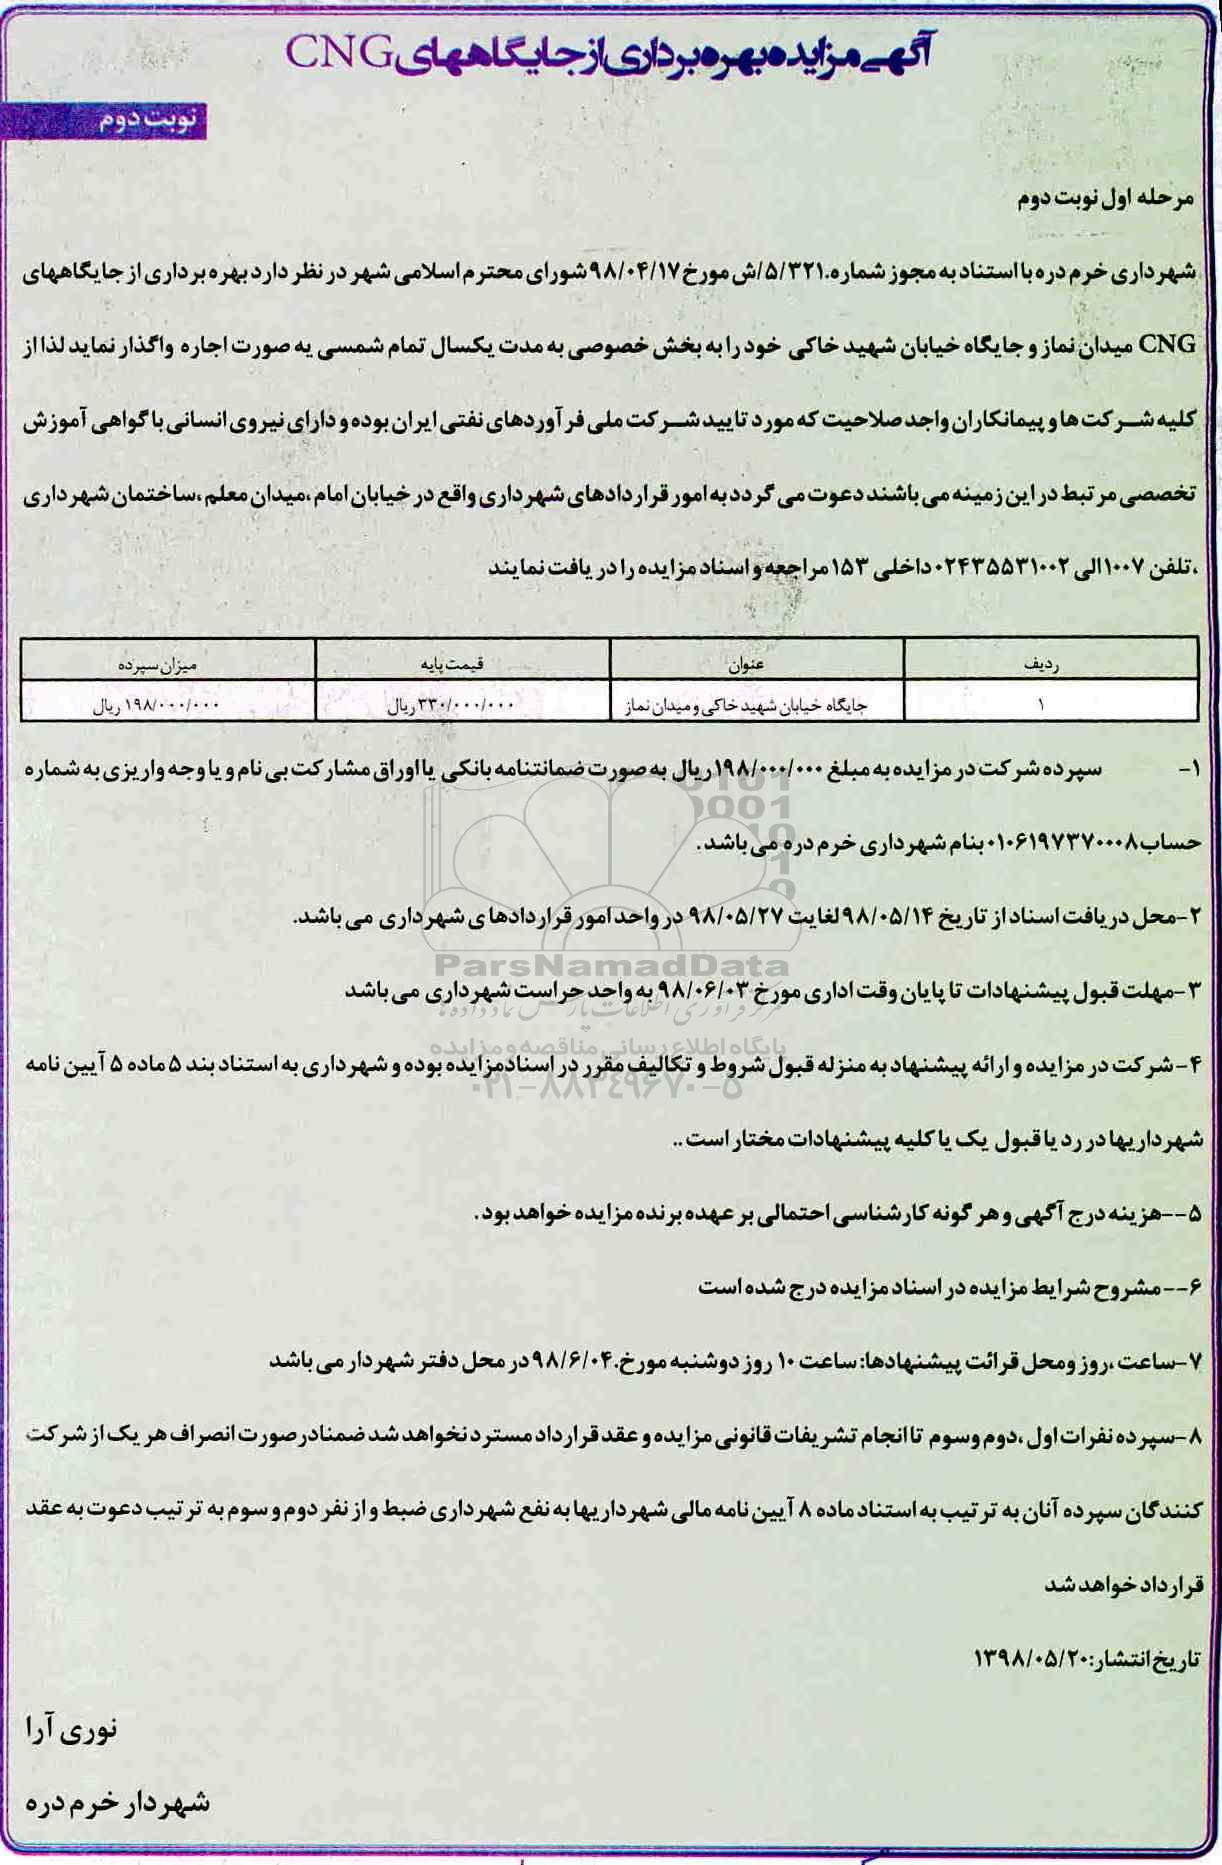 آگهی مزایده بهره برداری از جایگاههای CNG
نوبت دوم
مرحله اول نوبت دوم
شهرداری خرم دره با استناد به مجوز شماره.۵/۳۲۱/ش مورخ ۹۸/۰۴/۱۷شورای محترم اسلامی شهر در نظر دارد بهره برداری از جایگاههای
CNG میدان نماز و جایگاه خیابان شهید خاکی خود را به بخش خصوصی به مدت یکسال تمام شمسی به صورت اجاره واگذار نماید لذا از
کلیه شرکت ها و پیمانکاران واجد صلاحیت که مورد تایید شرکت ملی فرآوردهای نفتی ایران بوده و دارای نیروی انسانی با گواهی آموزش
تخصصی مرتبط در این زمینه می باشند دعوت می گردد به امور قراردادهای شهرداری واقع در خیابان امام ،میدان معلم ،ساختمان شهرداری
،تلفن ۱۰۰۷الی ۰۲۴۳۵۵۳۱۰۰۲داخلی ۱۵۳مراجعه و اسناد مزایده را دریافت نمایند
ردیف عنوان قیمت پایه میزان سپرده
۱ جایگاه خیابان شهید خاکی و میدان نماز ۳۳۰/۰۰۰/۰۰۰ریال ۱۹۸/۰۰۰/۰۰۰ ریال
۱- سپرده شرکت در مزایده به مبلغ ۱۹۸/۰۰۰/۰۰۰ریال به صورت ضمانتنامه بانکی یا اوراق مشارکت بی نام و یا وجه واریزی به شماره
حساب۰۱۰۶۱۹۷۳۷۰۰۰۸بنام شهرداری خرم دره می باشد.
۲-محل دریافت اسناد از تاریخ ۹۸/۰۵/۱۴لغایت ۹۸/۰۵/۲۷ در واحد امور قراردادها ی شهرداری می باشد.
۳-مهلت قبول پیشنهادات تا پایان وقت اداری مورخ ۹۸/۰۶/۰۳ به واحد حراست شهرداری می باشد
۴-شرکت در مزایده و ارائه پیشنهاد به منزله قبول شروط و تکالیف مقرر در اسنادمزایده بوده و شهرداری به استناد بند ۵ ماده ۵ آیین نامه
شهرداریها در رد یا قبول یک یا کلیه پیشنهادات مختار است ..
۵--هزینه درج آگهی و هر گونه کارشناسی احتمالی بر عهده برنده مزایده خواهد بود.
۶--مشروح شرایط مزایده در اسناد مزایده درج شده است
۷-ساعت ،روز ومحل قرائت پیشنهادها: ساعت ۱۰ روز دوشنبه مورخ.۹۸/۶/۰۴ در محل دفتر شهردار می باشد
۸-سپرده نفرات اول ،دوم وسوم تا انجام تشریفات قانونی مزایده و عقد قرارداد مسترد نخواهد شد ضمنادرصورت انصراف هر یک از شرکت
کنندگان سپرده آنان به ترتیب به استناد ماده ۸ آیین نامه مالی شهرداریها به نفع شهرداری ضبط و از نفر دوم و سوم به ترتیب دعوت به عقد
قرارداد خواهد شد
تاریخ انتشار:۱۳۹۸/۰۵/۲۰
نوری آرا
شهردار خرم دره
ParsNamadData
مرکز فرآوری اطلاعات پارس نماد داده ها
پایگاه اطلاع رسانی مناقصه و مزایده
۰۲۱-۸۸۳۴۹۶۷۰-۵